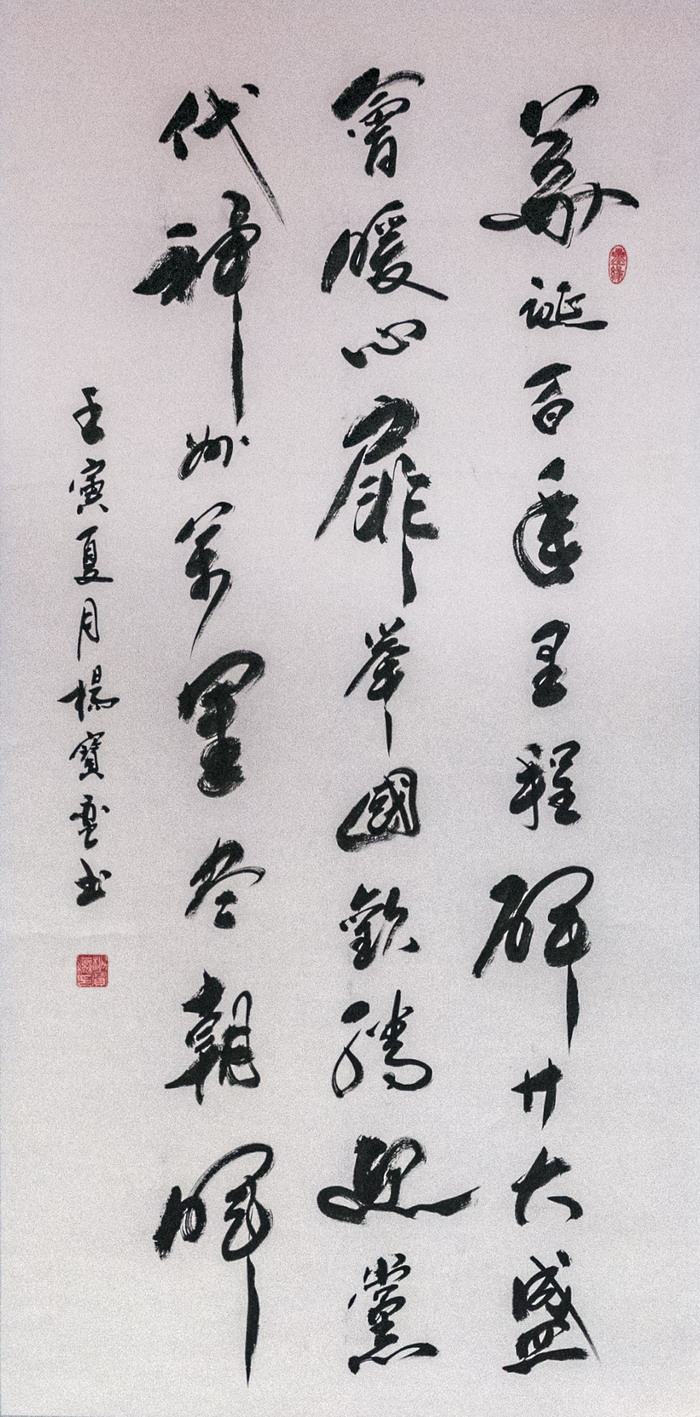 華誕百年里程碑廿大盛
會暖心扉举國歡騰迎黨
代神州萬里尽朝暉
壬寅夏月楊寶雲书